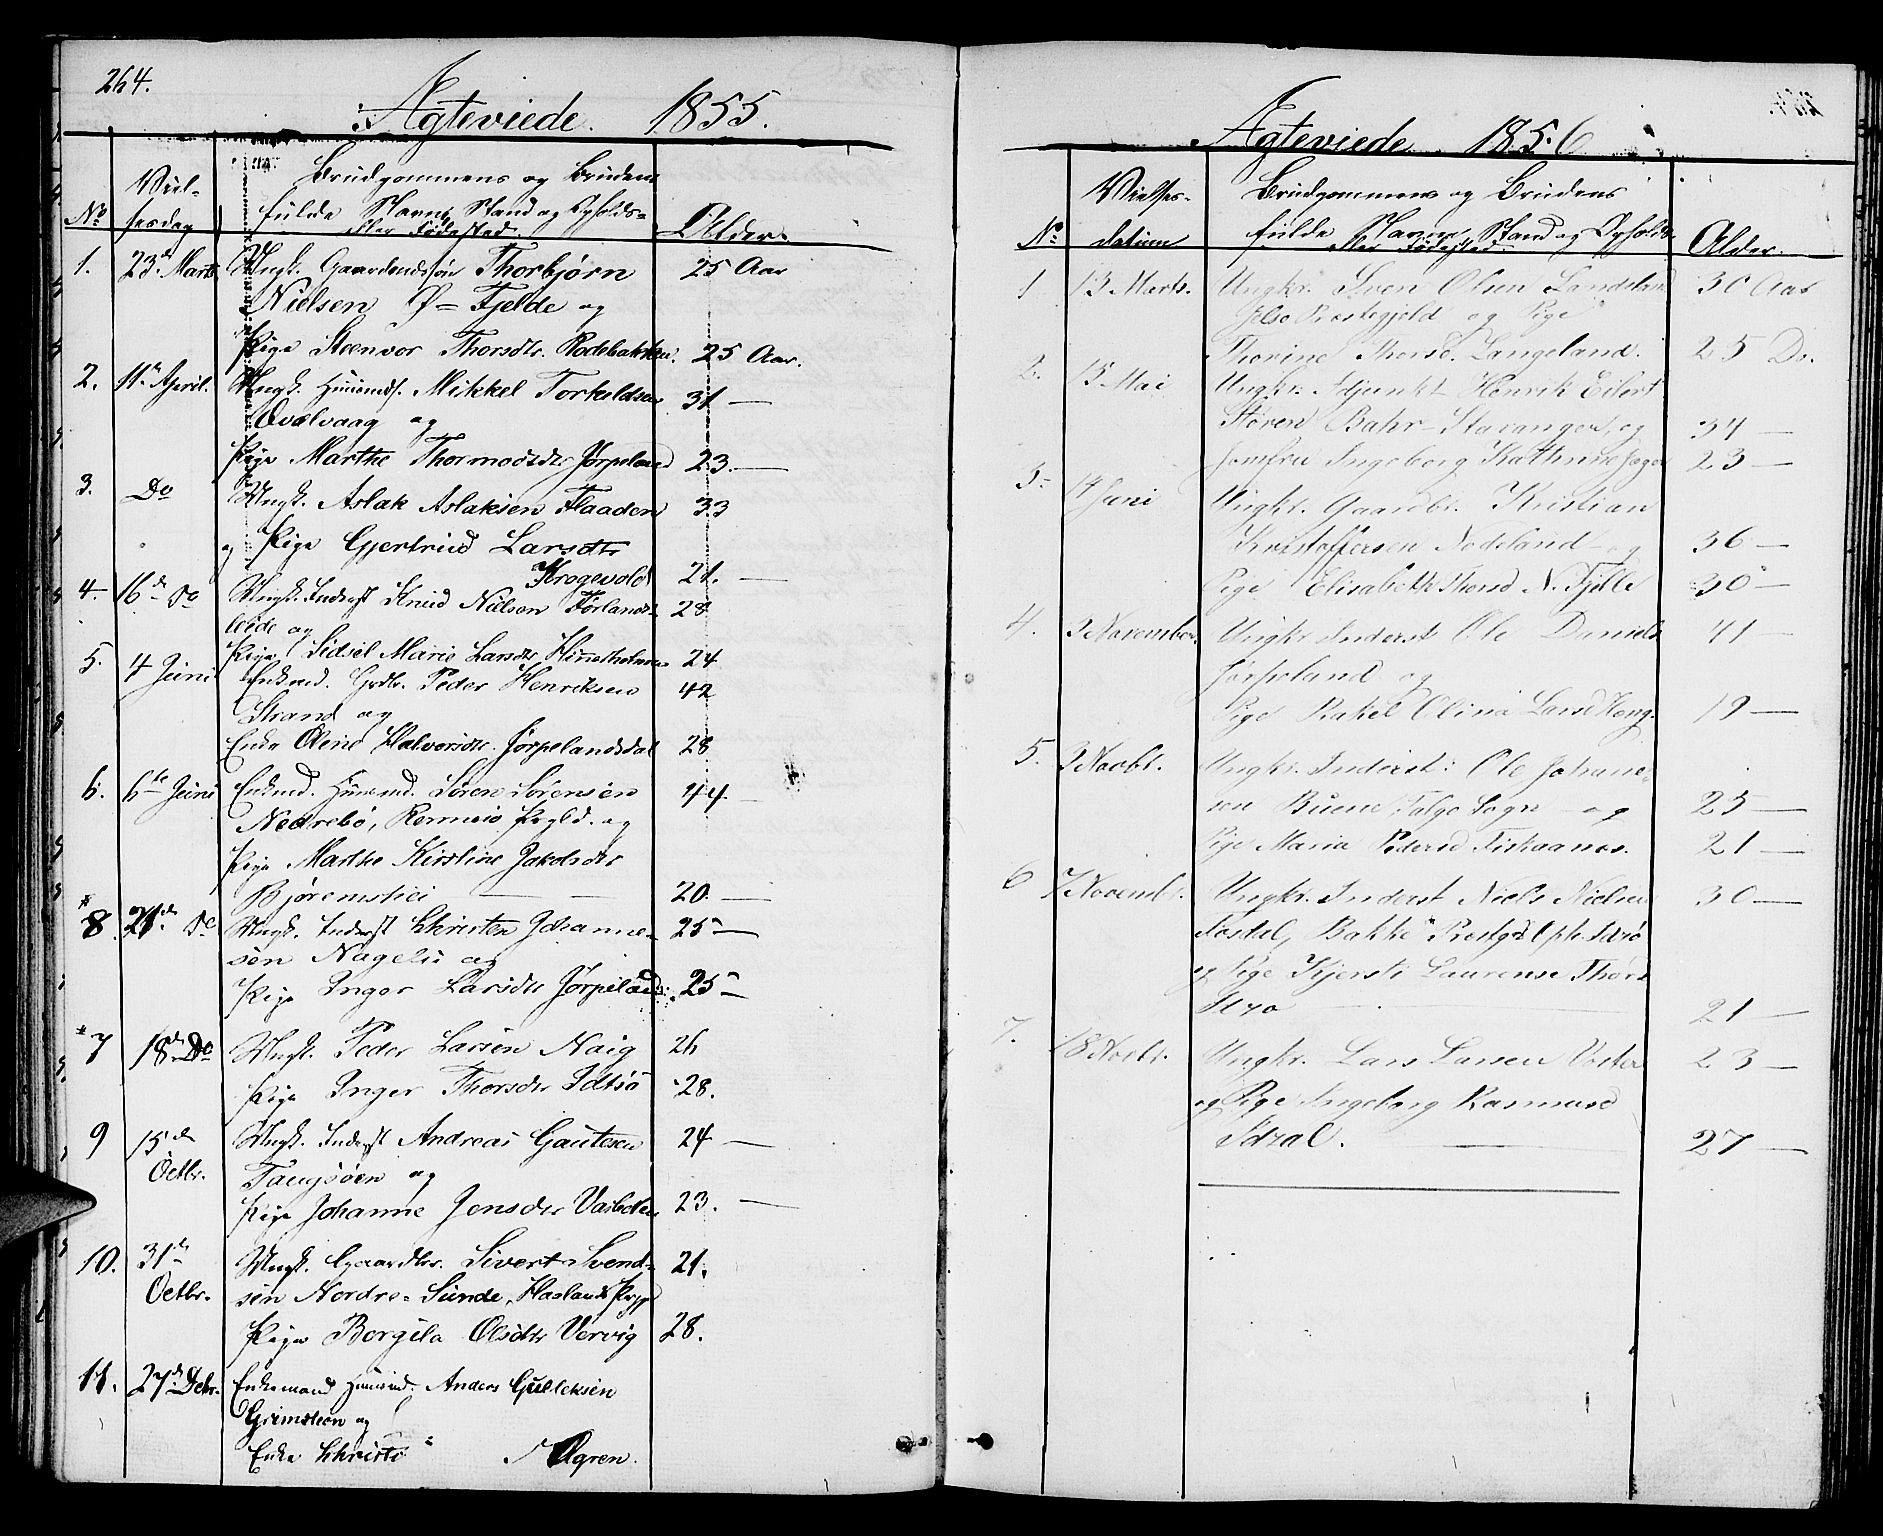 264.
Ægteviede. 1855.
No Viel-
sesdag
Brudgommens og Brudens
fulde Navne, Stand og Opholds-
eller Fødested.
Alder.
1. 23de Marts Ungk. Gaardmandssøn Thorbjørn 25 Aar
Nielsen Ø-Fjelde og
Pige Steenvor Thorsdtr. 25 Aar.
2. 11te April. Ungk. Huusmds. Mikkel Torkeldsen 31 —
Qvalvaag og
Pige Marthe Thormodsdtr Jørpeland 23. —
3. Do Ungk. Aslak Aslaksen Flaaden 33
og Pige Gjertrud Larsdtr
Krogevold 21. —
4. 16de Do Ungk. Inderst Knud Nielsen Førlands- 28
leide og
Pige Sidsel Marie Larsdtr Hinneholmen 24
5. 4 Juni Enkmd. Grdbr. Peder Henriksen 42
Strand og
Enke Olene Halvorsdtr. Jørpelandsdal 28
6. 6te Juni Enkmd. Huusmd. Søren Sørensen 44 —
Nedrebø, Rennesø Prgld. og
Pige Marthe Kirstine Jakobsdtr
Bjøremshei — — 20. —
* 8. 21de Do Ungk. Inderst Christen Johanne- 25 —
sen Nagelsi og
Pige Inger Larsdtr Jørpeland 25 —
* 7 18de Do Ungk. Peder Larsen Naig 26
Pige Inger Thorsdtr Idtsö 28.
9 15de Octbr. Ungk. Inderst Andreas Gautesen 24 —
Taugsøen og
Pige Johanne Jensdtr 23. —
10. 31de Octbr. Ungk. Gaardbr. Sivert Svend- 21.
sen Nordre-Sunde, Haalands Prgj
Pige Borgila Olsdtr Vervig 28.
11. 27de Debr. Enkemand Huusmd. Anders Gulleksen
Grimsleen og
Enke Christi Øgren.
Ægteviede 1856
No Vielses-
datum
Brudgommens og Brudens
fulde Navne, Stand og Opholds-
eller Fødested.
Alder.
1 13 Marts. Ungkr. Sven Olsen Landsland 30 Aar
Jelsø Præstegjeld og Pige
Thorine Thorsd. Langeland. 25 Do.
2. 15 Mai Ungkr. Adjunkt Henrik Eilert
Støren Bahr- Stavanger, og 34 —
Jomfru Ingeborg Kathrine 23 —
3- 14 Juni Ungkr. Gaardbr. Kristian
Kristoffersen Nodeland og 36 —
Pige Elisabeth Thorsd N. Fjelle 30 —
4. 3 November. Ungkr. Inderst Ole Daniels 41 —
Jørpeland og
Pige Rakel Olina Larsd Heng. 19 —
5. 3 Novbr. Ungkr. Inderst: Ole Johanne-
sen Buene Talge Sogn og 25 —
Pige Maria Pedersd Fiskaanes. 21 —
6 7 Novembr. Ungkr. Inderst Niels Nielsen 30 —
Fosdal, Bakke Prestgd Oph. Idsø
og Pige Kjersti Laurense Thors
Idsø — 21 —
7. 18 Novbr. Ungkr. Lars Larsen Voster 23 —
og Pige Ingeborg Rasmusd
Idsal. — 27 —